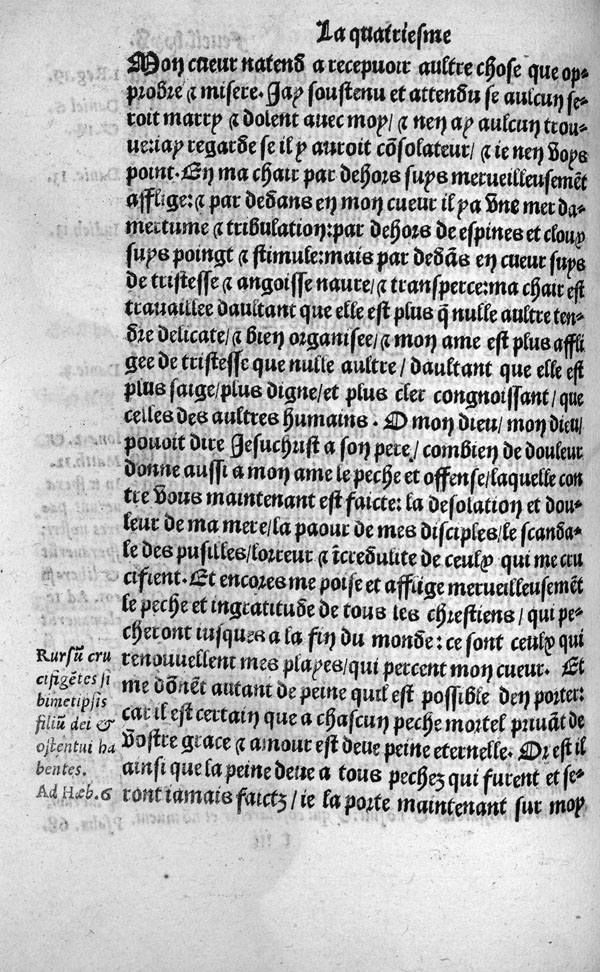 La quatriesme
Mon cueur natend a recepuoir aultre chose que op-
probre & misere. Jay soustenu et attendu se aulcun se-
roit marry & dolent auec moy/ & nen ay aulcun trou-
ue:iay regarde se il y auroit cõsolateur/ & ie nen voys
point. En ma chair par dehors suys merueilleusemẽt
afflige: & par dedans en mon cueur il ya vne mer da-
mertume & tribulation:par dehors de espines et cloux
suys poingt & stimule:mais par dedãs en cueur suys
de tristesse & angoisse naure/ & transperce:ma chair est
trauaillee daultant que elle est plus q̃ nulle aultre ten-
dre delicate/ & bien organisee/ & mon ame est plus affli
gee de tristesse que nulle aultre/ daultant que elle est
plus saige/plus digne/et plus cler congnoissant/ que
celles des aultres humains. O mon dieu/ mon dieu/
pouoit dire Jesuchrist a son pere/ combien de douleur
donne aussi a mon ame le peche et offense/laquelle con
tre vous maintenant est faicte: la desolation et dou-
leur de ma mere/la paour de mes disciples/le scanda-
le des pusilles/lorreur & ĩcredulite de ceulx qui me cru
cifient. Et encores me poise et afflige merueilleusemẽt
le peche et ingratitude de tous les chrestiens/ qui pe-
cheront iusques a la fin du monde: ce sont ceulx qui
renouuellent mes playes/qui percent mon cueur. Et
me dõnẽt autant de peine quil est possible den porter:
car il est certain que a chascun peche mortel priuãt de
vostre grace & amour est deue peine eternelle. Or est il
ainsi que la peine deue a tous pechez qui furent et se-
ront iamais faictz/ ie la porte maintenant sur moy
Rursũ cru
cifigẽtes si
bimetipsis
filiũ dei &
ostentui ha
bentes.
Ad Hæb. 6